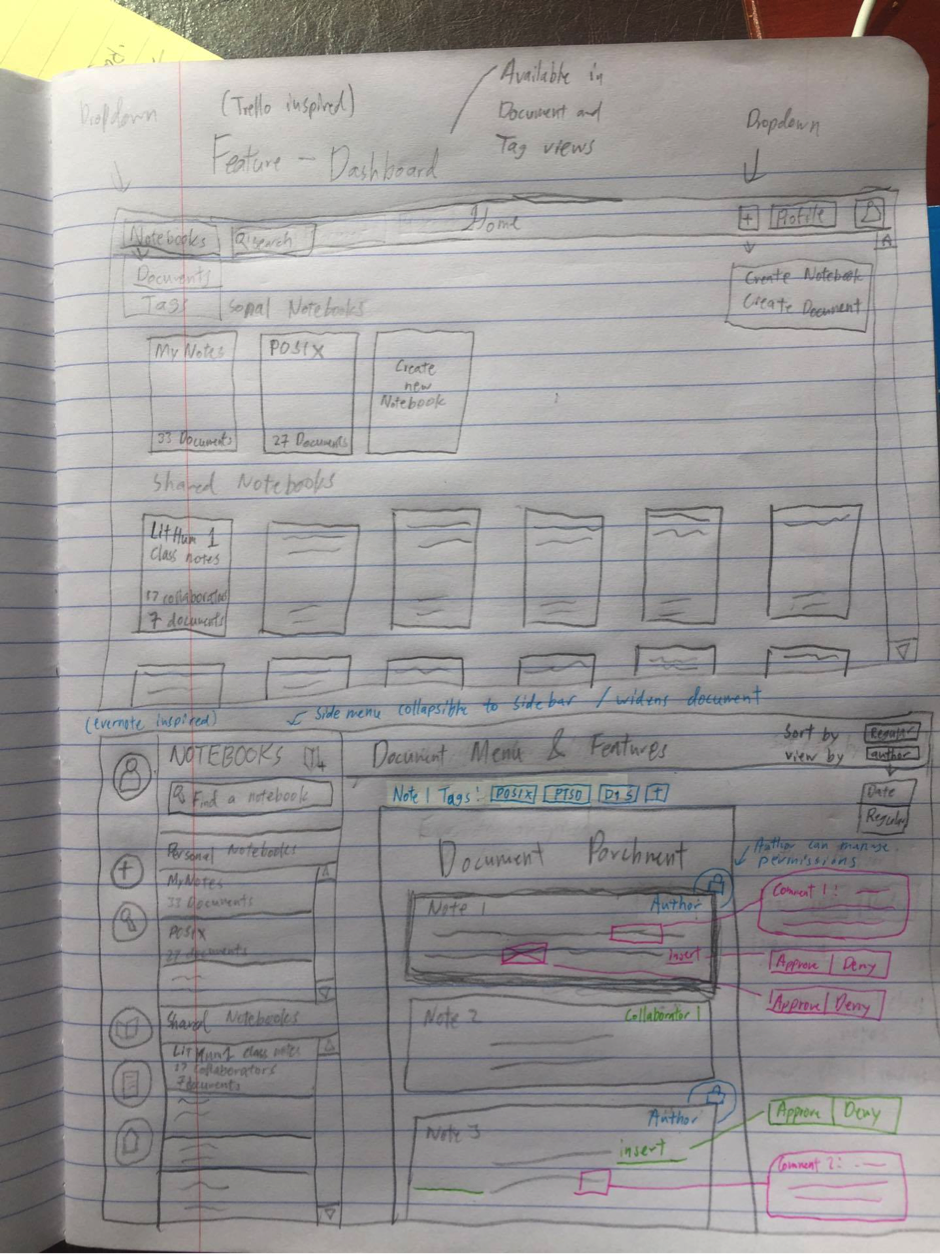 Dropdown
(Trello inspired)
Feature - Dashboard
Available in
Document and
Tag views
Dropdown
Notebooks
Search
Home
+
Profile
Documents
Tags
sonal Notebooks
Create Notebook
Create Document
My Notes
33 Documents
POSIX
27 Documents
Create
new
Notebook
Shared Notebooks
Lit Hum 1
class notes
17 collaborators
7 documents
(evernote inspired)
Side menu collapsible to sidebar / widens document
NOTEBOOKS
Find a notebook
Personal Notebooks
My Notes
33 Documents
POSIX
27 documents
Shared Notebooks
Lit Hum 1 class notes
17 collaborators
7 documents
Document Menu & Features
Sort by
Regular
view by
author
Date
Regular
Note 1 Tags:
POSIX
+
Document Parchment
Author can manage
permissions
Note 1
Author
Insert
Comment 1:
Approve | Deny
Approve | Deny
Note 2
Collaborator 1
Note 3
Author
insert
Approve | Deny
Comment 2: